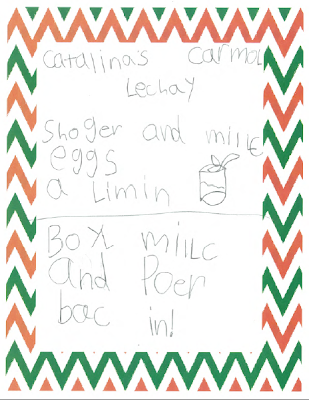 Catalina's Carmol
Lechay
Shoger and milk
eggs
a Limin
Box milc
and Poer
bac in!